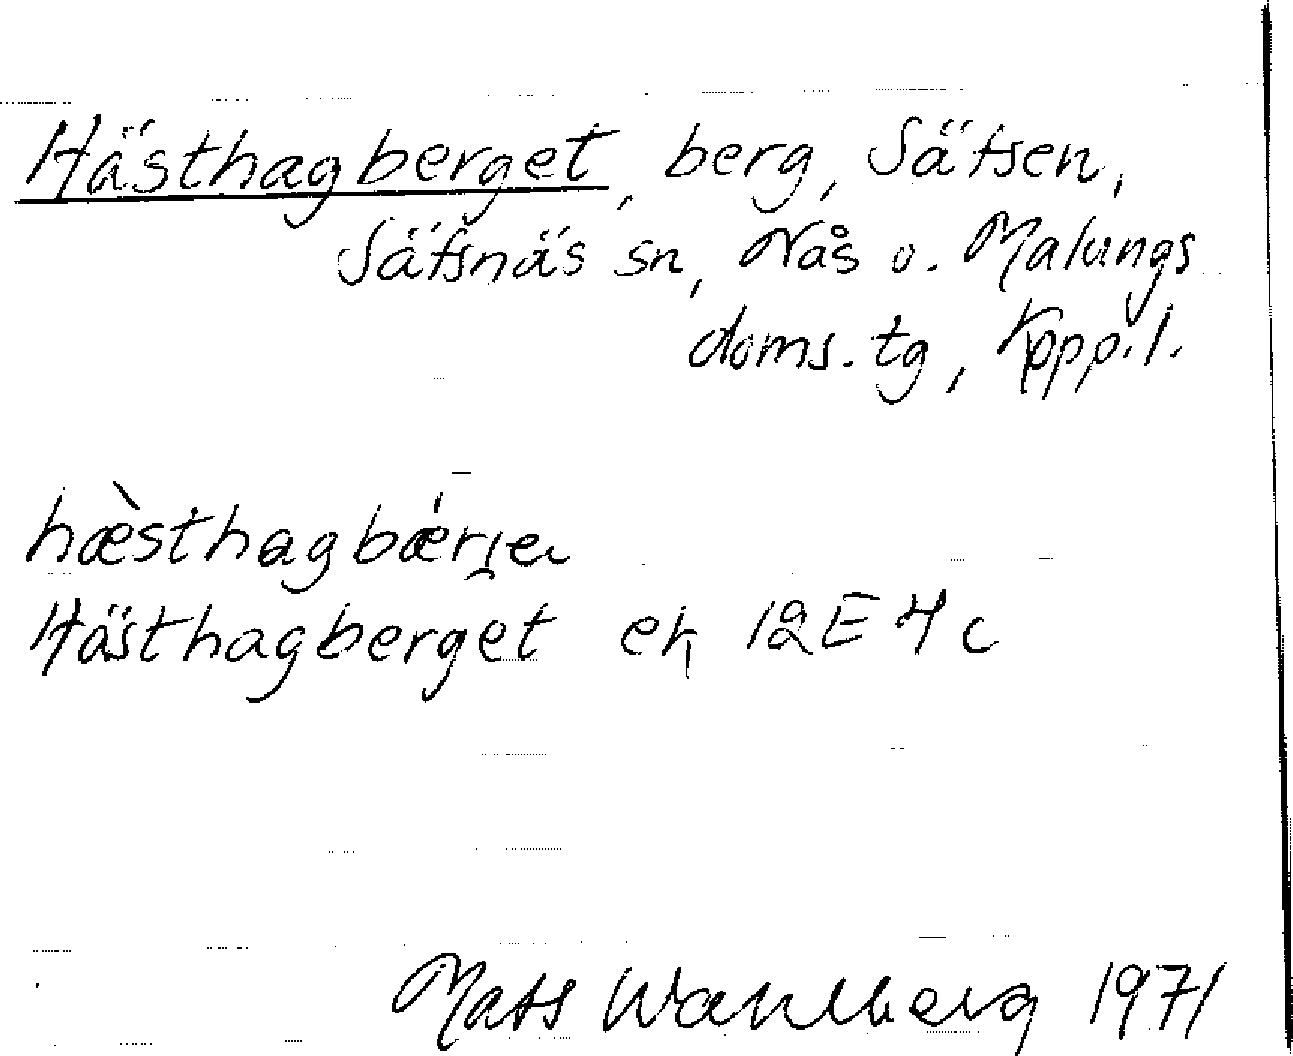 Hästhagberget, berg, Sätsen,
Säfsnäs sn, Nås o. Malungs
doms. tg, Kopp. l.
hæ̀sthagbǽrjeɴ
Hästhagberget ek 12E 4c
Mats Wahlberg 1971